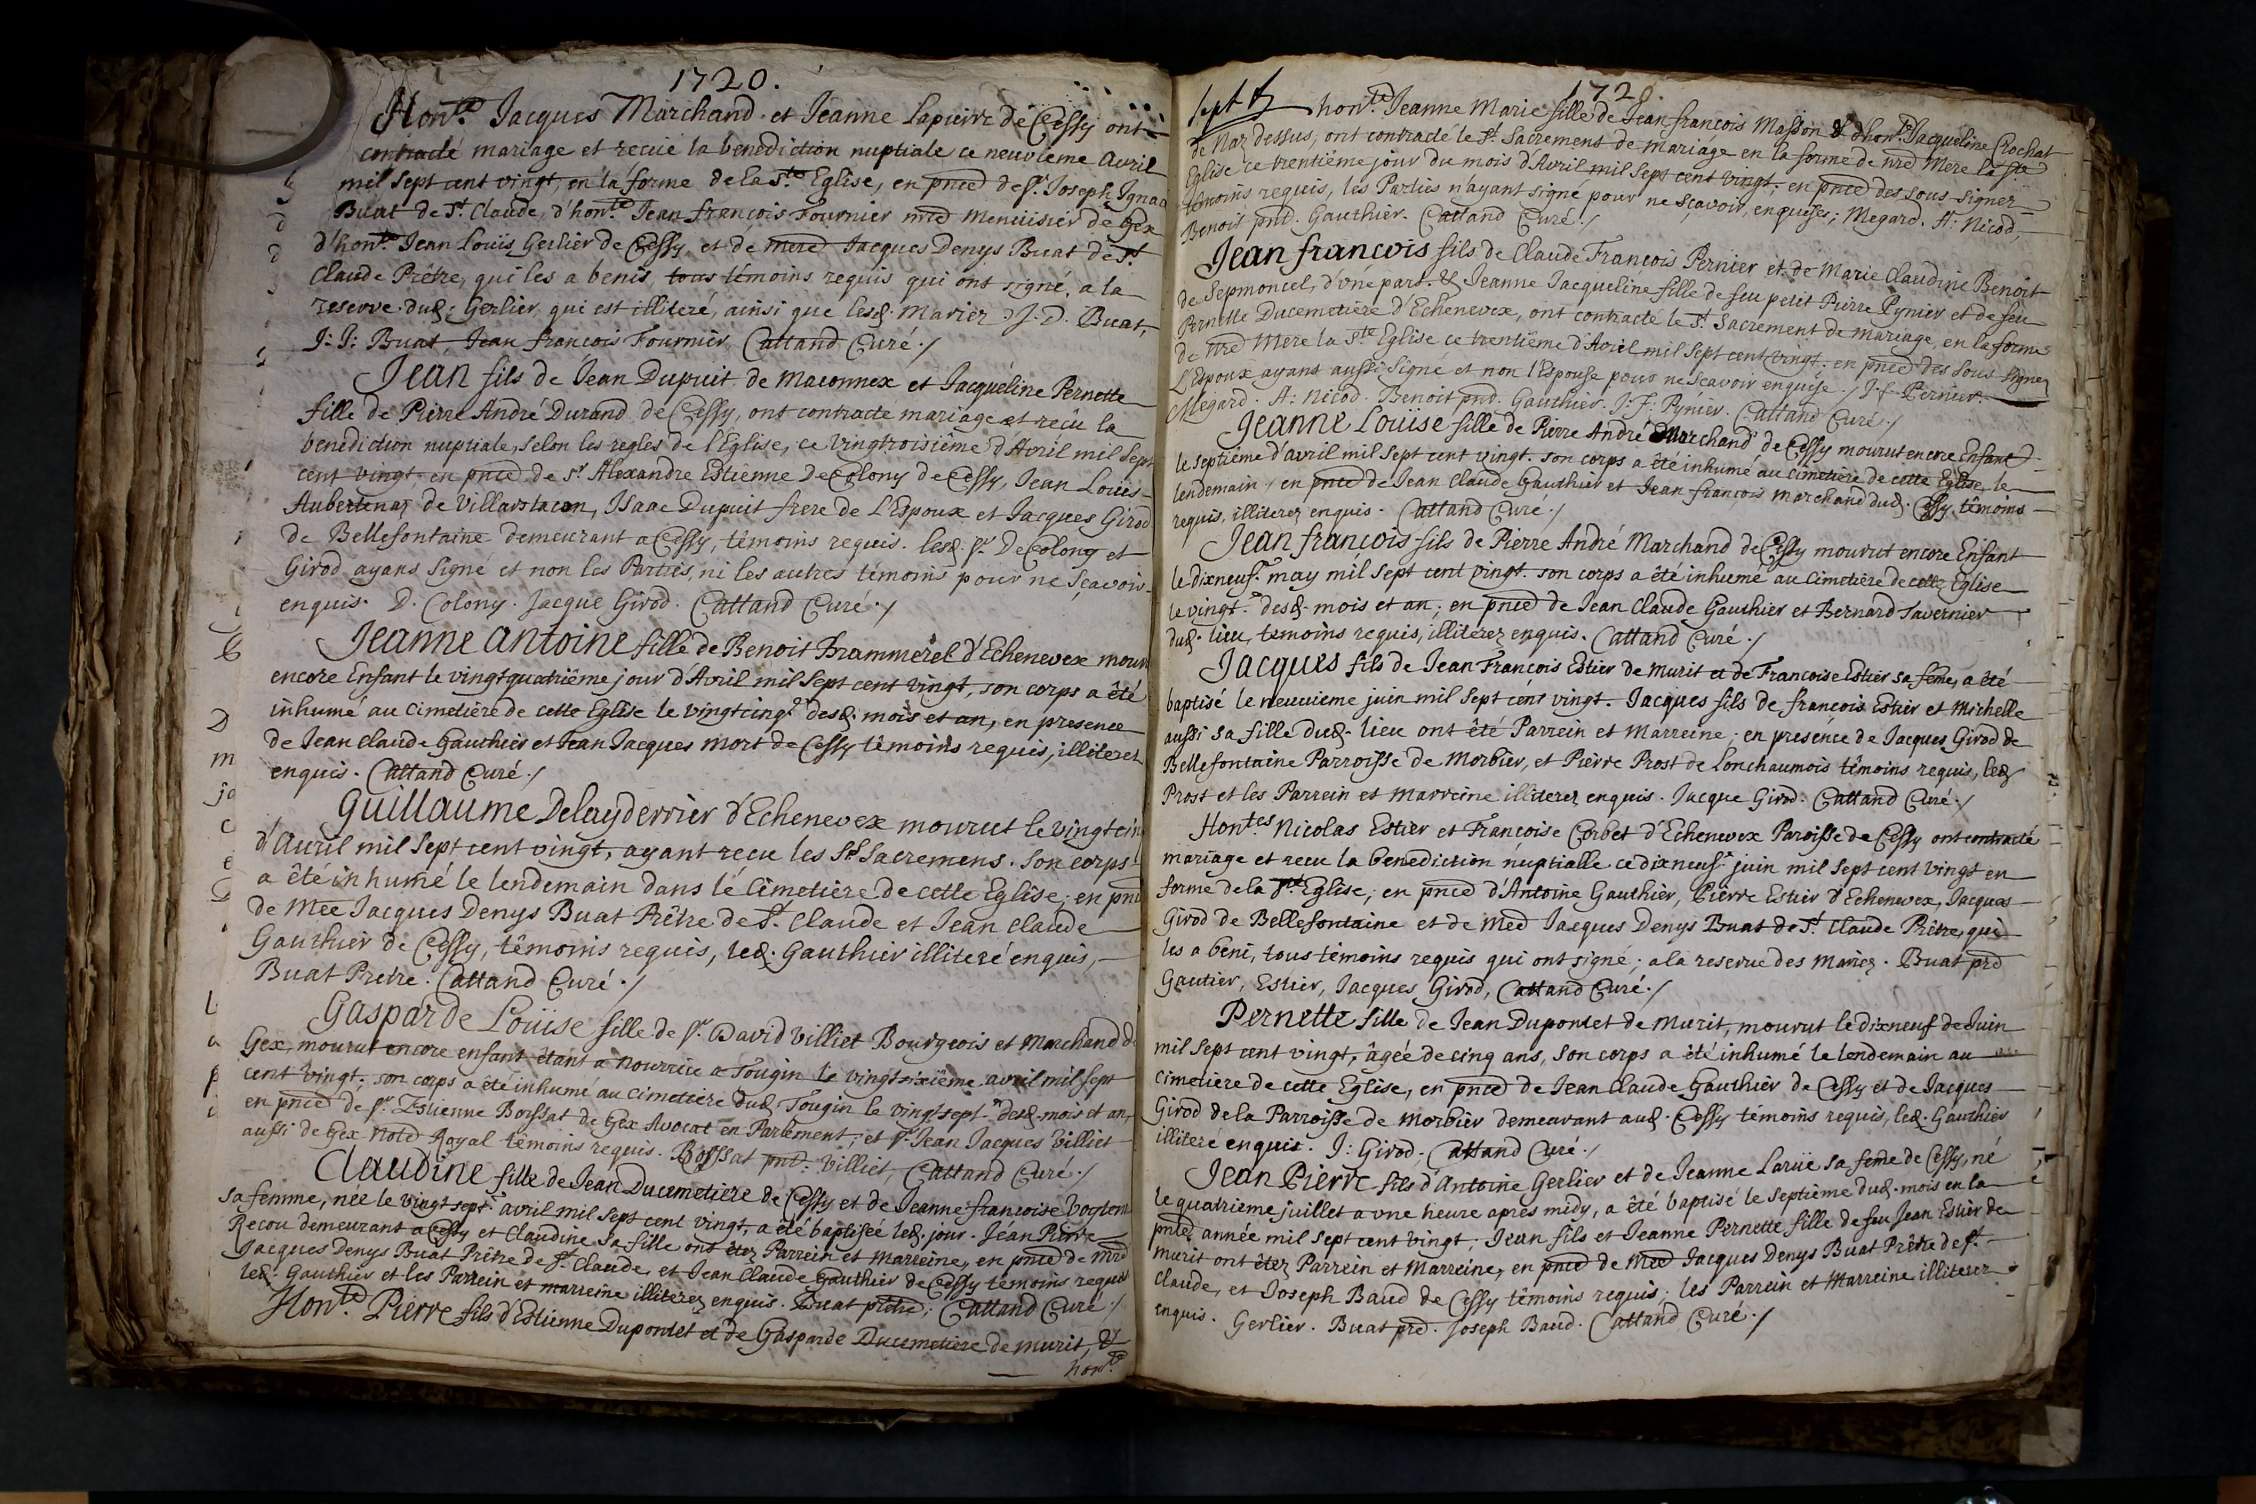 1720.
Hon.te Jacques Marchand et Jeanne Lapierre de Cessy ont
contracté mariage et recüe la benediction nuptiale ce neuvieme Avril
mil sept cent vingt, en la forme de la Ste Eglise, en pnce de Sr Joseph Ignac
Buat de St Claude, d'hon.te Jean François Fournier mre menuisier de Gex
d'hon.te Jean Loüis Gerlier de Cessy, et de mere Jacques Denys Buat de St
Claude Prêtre, qui les a benis, tous témoins requis qui ont signé, a la
reserve dud. Gerlier, qui est illiteré, ainsi que lesd. Mariez. J. D. Buat,
J: J: Buat, Jean François Fournier, Cattand Curé ./
Jean fils de Jean Dupuit de Maconnex et Jacqueline Pernette
fille de Pierre André Durand de Cessy, ont contracte mariage et reçu la
benediction nuptiale, selon les regles de l'Eglise, ce vingtroisième d'Avril mil sept
cent vingt en pnce de Sr Alexandre Estienne De Colony de Cessy, Jean Loüis
Aubertenaz de Villarstacon, Isaac Dupuit frere de L'Espoux et Jacques Girod
de Bellefontaine demeurant a Cessy, témoins requis. lesd. Sr De Colony et
Girod ayans signé et non les Parties, ni les autres témoins pour ne sçavoir
enquis. D. Colony. Jacque Girod. Cattand Curé ./
Jeanne Antoine fille de Benoit Brammerel d'Echenevex mour
encore Enfant le vingtquatrième jour d'Avril mil sept cent vingt, son corps a été
inhumé au cimetière de cette Eglise le vingtcinq.e desd. mois et an, en presence
de Jean Claude Gauthier et Jean Jacques Mort de Cessy témoins requis, illiterez
enquis. Cattand Curé ./
Guillaume Delayderrier d'Echenevex mourut le vingtcin
d'Avril mil sept cent vingt, ayant recu les Sts Sacremens. Son corps
a été inhumé le lendemain dans le Cimetiere de cette Eglise, en pnc
de Mre Jacques Denys Buat Prêtre de St Claude et Jean Claude
Gauthier de Cessy, têmoins requis, led. Gauthier illiteré enquis,
Buat Prêtre. Cattand Curé ./
Gasparde Loüise fille de Sr David Villiet Bourgeois et Marchand d
Gex, mourut encore enfant étant a nourrice a Tougin le vingtsixième avril mil sept
cent vingt, son corps a été inhumé au cimetière dud. Tougin le vingtsept.e desd. mois et an,
en pnce de Sr Estienne Boissat de Gex Avocat en Parlement, et Sr Jean Jacques Villiet
aussi de Gex Notre Royal témoins requis. Boissat pnt. Villiet, Cattand Curé ./
Claudine fille de Jean Ducemetiere de Cessy et de Jeanne Françoise
sa femme, née le vingtsept.e avril mil sept cent vingt, a été baptisée led. jour. Jean Pierre
Recou demeurant a Cessy et Claudine sa fille ont étez Parrein et Marreine, en pnce de Mre
Jacques Denys Buat Prêtre de St Claude, et Jean Claude Gauthier de Cessy témoins requis
led. Gauthier et les Parrein et marreine illiterez enquis. Buat prêtre; Cattand Curé ./
Hon.te Pierre fils d'Estienne Dupontet et de Gasparde Ducemetiere de Murit, &
hon.te
1720.
hon.te Jeanne Marie fille de Jean François Masson & d'hon.te Jacqueline Crochat
de Naz dessus, ont contracté le St Sacrement de mariage en la forme de nre Mere la Ste
Eglise ce trentième jour du mois d'Avril mil sept cent vingt, en pnce des sous-signez
témoins requis, les Parties n'ayant signé pour ne sçavoir, enquises; Megard. A: Nicod,
Benoit pnt. Gauthier. Cattand Curé ./
Jean François fils de Claude François Pernier et de Marie Claudine Benoit
de Sepmoncel, d'vne part. & Jeanne Jacqueline fille de feu petit Pierre Pynier et de feu
Pernette Ducemetiere d'Echenevex, ont contracté le St Sacrement de mariage, en la forme
de nre Mere la Ste Eglise ce trentième d'Avril mil sept cent vingt, en pnce des sous signez
L'Espoux ayans aussi signé et non l'Espouse pour ne sçavoir enquise ./ J. f. Pernier.
Megard. A: Nicod. Benoit pnt. Gauthier. J: F: Pynier. Cattand Curé ./
Jeanne Loüise fille de Pierre André Marchand de Cessy mourut encore Enfant
le septième d'avril mil sept cent vingt. son corps a été inhumé au cimetière de cette Eglise le
lendemain, en pnce de Jean Claude Gauthier et Jean François Marchand dud. Cessy témoins
requis, illiterez enquis. Cattand Curé ./
Jean François fils de Pierre André Marchand de Cessy mourut encore Enfant
le dixneuf.e may mil sept cent vingt. son corps a été inhumé au cimetière de cette Eglise
le vingt.e desd. mois et an, en pnce de Jean Claude Gauthier et Bernard Tavernier
dud. lieu, temoins requis, illiterez enquis. Cattand Curé ./
Jacques fils de Jean François Estier de Murit et de Françoise Estier sa feme, a été
baptisé le neuvieme juin mil sept cent vingt. Jacques fils de François Estier et Michelle
aussi sa fille dud. lieu ont été Parrein et Marreine; en presence de Jacques Girod de
Bellefontaine Parroisse de Morbier, et Pierre Prost de Lonchaumois têmoins requis, led.
Prost et les Parrein et Marreine illiterez enquis. Jacque Girod. Cattand Curé ./
Hon.tes Nicolas Estier et Françoise Corbet d'Echenevex Paroisse de Cessy ont contracté
mariage et recu la benediction nuptialle ce dixneuf.e juin mil sept cent vingt en
forme de la Ste Eglise, en pnce d'Antoine Gauthier, Pierre Estier d'Echenevex, Jacques
Girod de Bellefontaine et de Mre Jacques Denys Buat de St Claude Prêtre, qui
les a beni, tous témoins requis qui ont signé; a la reserve des Mariez. Buat pre
Gautier, Estier, Jacques Girod, Cattand Curé ./
Pernette fille de Jean Dupontet de Murit, mourut le dixneuf de Juin
mil sept cent vingt, âgée de cinq ans, son corps a été inhumé le lendemain au
Cimetiere de cette Eglise, en pnce de Jean Claude Gauthier de Cessy et de Jacques
Girod de la Parroisse de Morbier demeurant aud. Cessy témoins requis, led. Gauthier
illiteré enquis. J: Girod, Cattand Curé ./
Jean Pierre fils d'Antoine Gerlier et de Jeanne Larüe sa feme de Cessy, né
le quatrième juillet a vne heure après midy, a été baptisé le septième dud. mois en la
pnte année mil sept cent vingt; Jean fils et Jeanne Pernette fille de feu Jean Estier de
Murit ont étez Parrein et Marreine, en pnce de Mre Jacques Denys Buat Prêtre de St
Claude, et Joseph Baud de Cessy témoins requis; les Parrein et Marreine illiterez
enquis. Gerlier. Buat pre. Joseph Baud. Cattand Curé ./